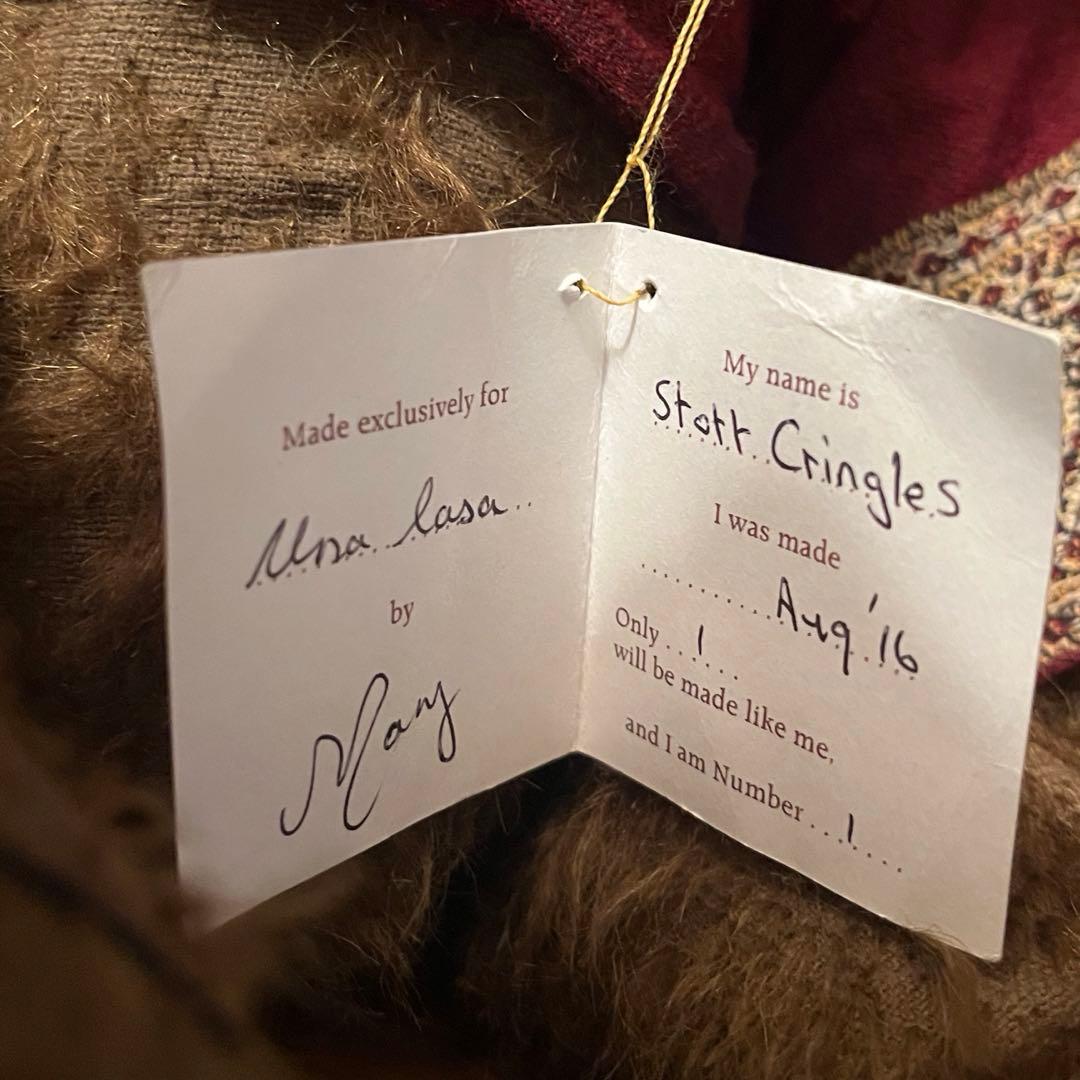 Made exclusively for
Ursa Casa
by
Mary
My name is
Stott Cringles
I was made
Aug '16
Only 1
will be made like me,
and I am Number 1